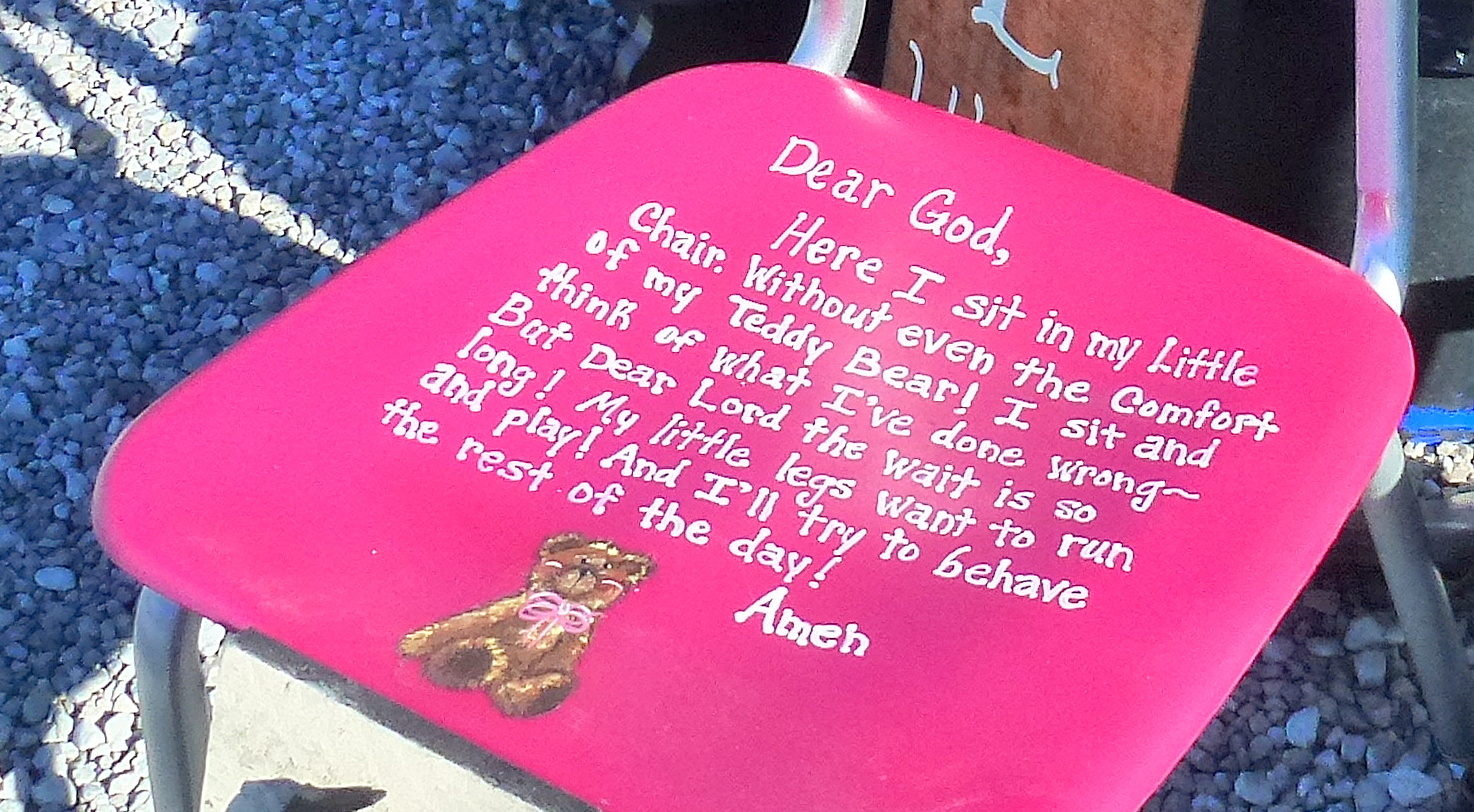 Dear God,
Here I sit in my Little
Chair. Without even the Comfort
of my Teddy Bear! I sit and
think of what I've done wrong~
But Dear Lord the wait is so
long! My little legs want to run
and play! And I'll try to behave
the rest of the day!
Amen